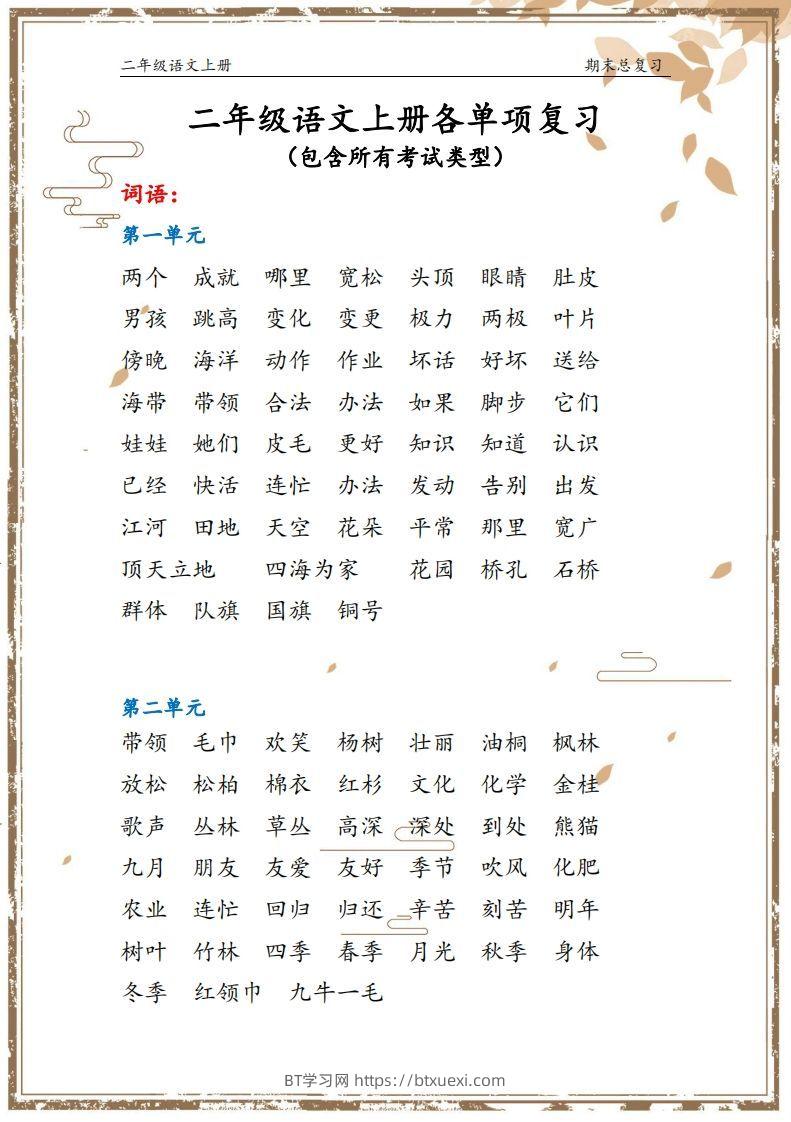 二年级语文上册 期末总复习
二年级语文上册各单项复习
（包含所有考试类型）
词语：
第一单元
两个 成就 哪里 宽松 头顶 眼睛 肚皮
男孩 跳高 变化 变更 极力 两极 叶片
傍晚 海洋 动作 作业 坏话 好坏 送给
海带 带领 合法 办法 如果 脚步 它们
娃娃 她们 皮毛 更好 知识 知道 认识
已经 快活 连忙 办法 发动 告别 出发
江河 田地 天空 花朵 平常 那里 宽广
顶天立地 四海为家 花园 桥孔 石桥
群体 队旗 国旗 铜号
第二单元
带领 毛巾 欢笑 杨树 壮丽 油桐 枫林
放松 松柏 棉衣 红杉 文化 化学 金桂
歌声 丛林 草丛 高深 深处 到处 熊猫
九月 朋友 友爱 友好 季节 吹风 化肥
农业 连忙 回归 归还 辛苦 刻苦 明年
树叶 竹林 四季 春季 月光 秋季 身体
冬季 红领巾 九牛一毛
BT学习网 https://btxuexi.com